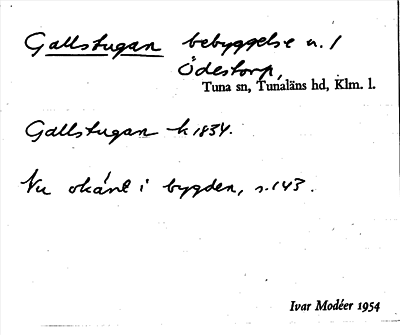 Gallstugan bebyggelse u. /
Ödestorp,
Tuna sn, Tunaläns hd, Klm. l.
Gallstugan k 1834.
Nu okänt i bygden, s. 143.
Ivar Modéer 1954